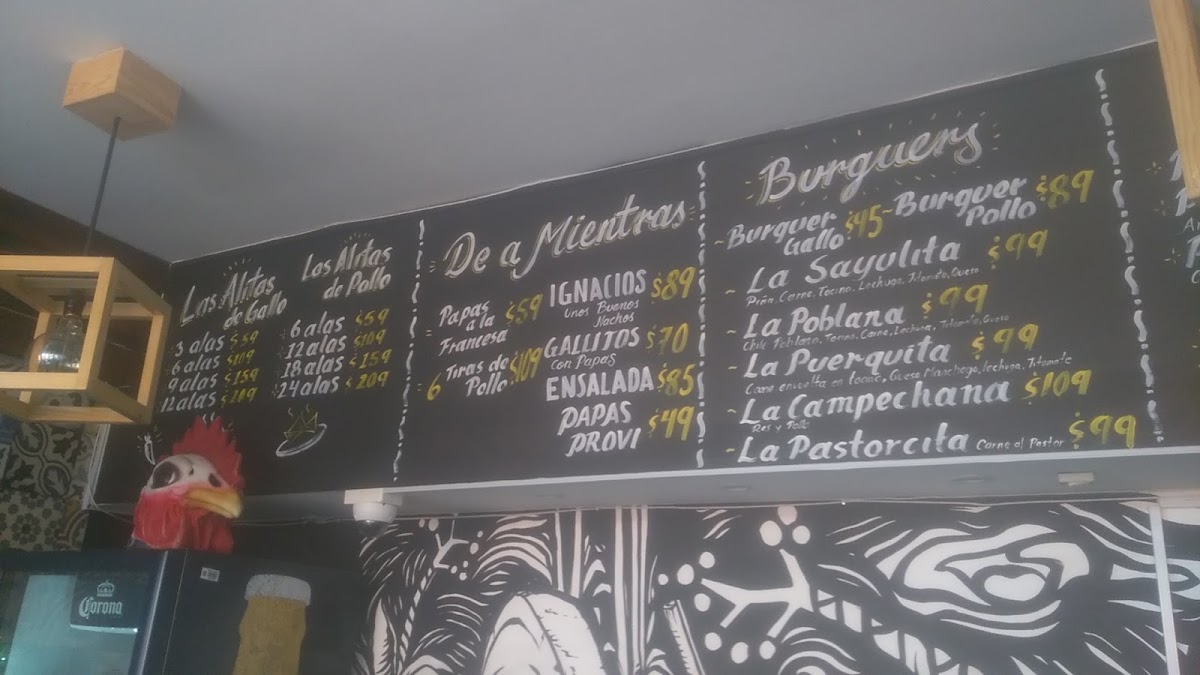 Las Alitas
de Gallo
3 alas $59
6 alas $109
9 alas $159
12 alas
Las Alitas
de Pollo
6 alas $59
12 alas $109
18 alas $159
24 alas $209
De a Mientras
Papas $59
a la
Francesa
6 Tiras de $109
Pollo
IGNACIOS $89
Unos Buenos
Nachos
GALLITOS $70
Con Papas
ENSALADA $85
PAPAS $49
PROVI
Burguers
Burguer $45
Gallo
Burguer $89
Pollo
La Sayulita $99
Piña, Carne, Tocino, Lechuga, Jitomate, Queso
La Poblana $99
Chile Poblano, Tocino, Carne, Lechuga, Jitomate, Queso
La Puerquita $99
Carne envuelta en tocino, Queso Manchego, lechuga, Jitomate
La Campechana $109
Res y Pollo
La Pastorcita Carne al Pastor $99
Corona